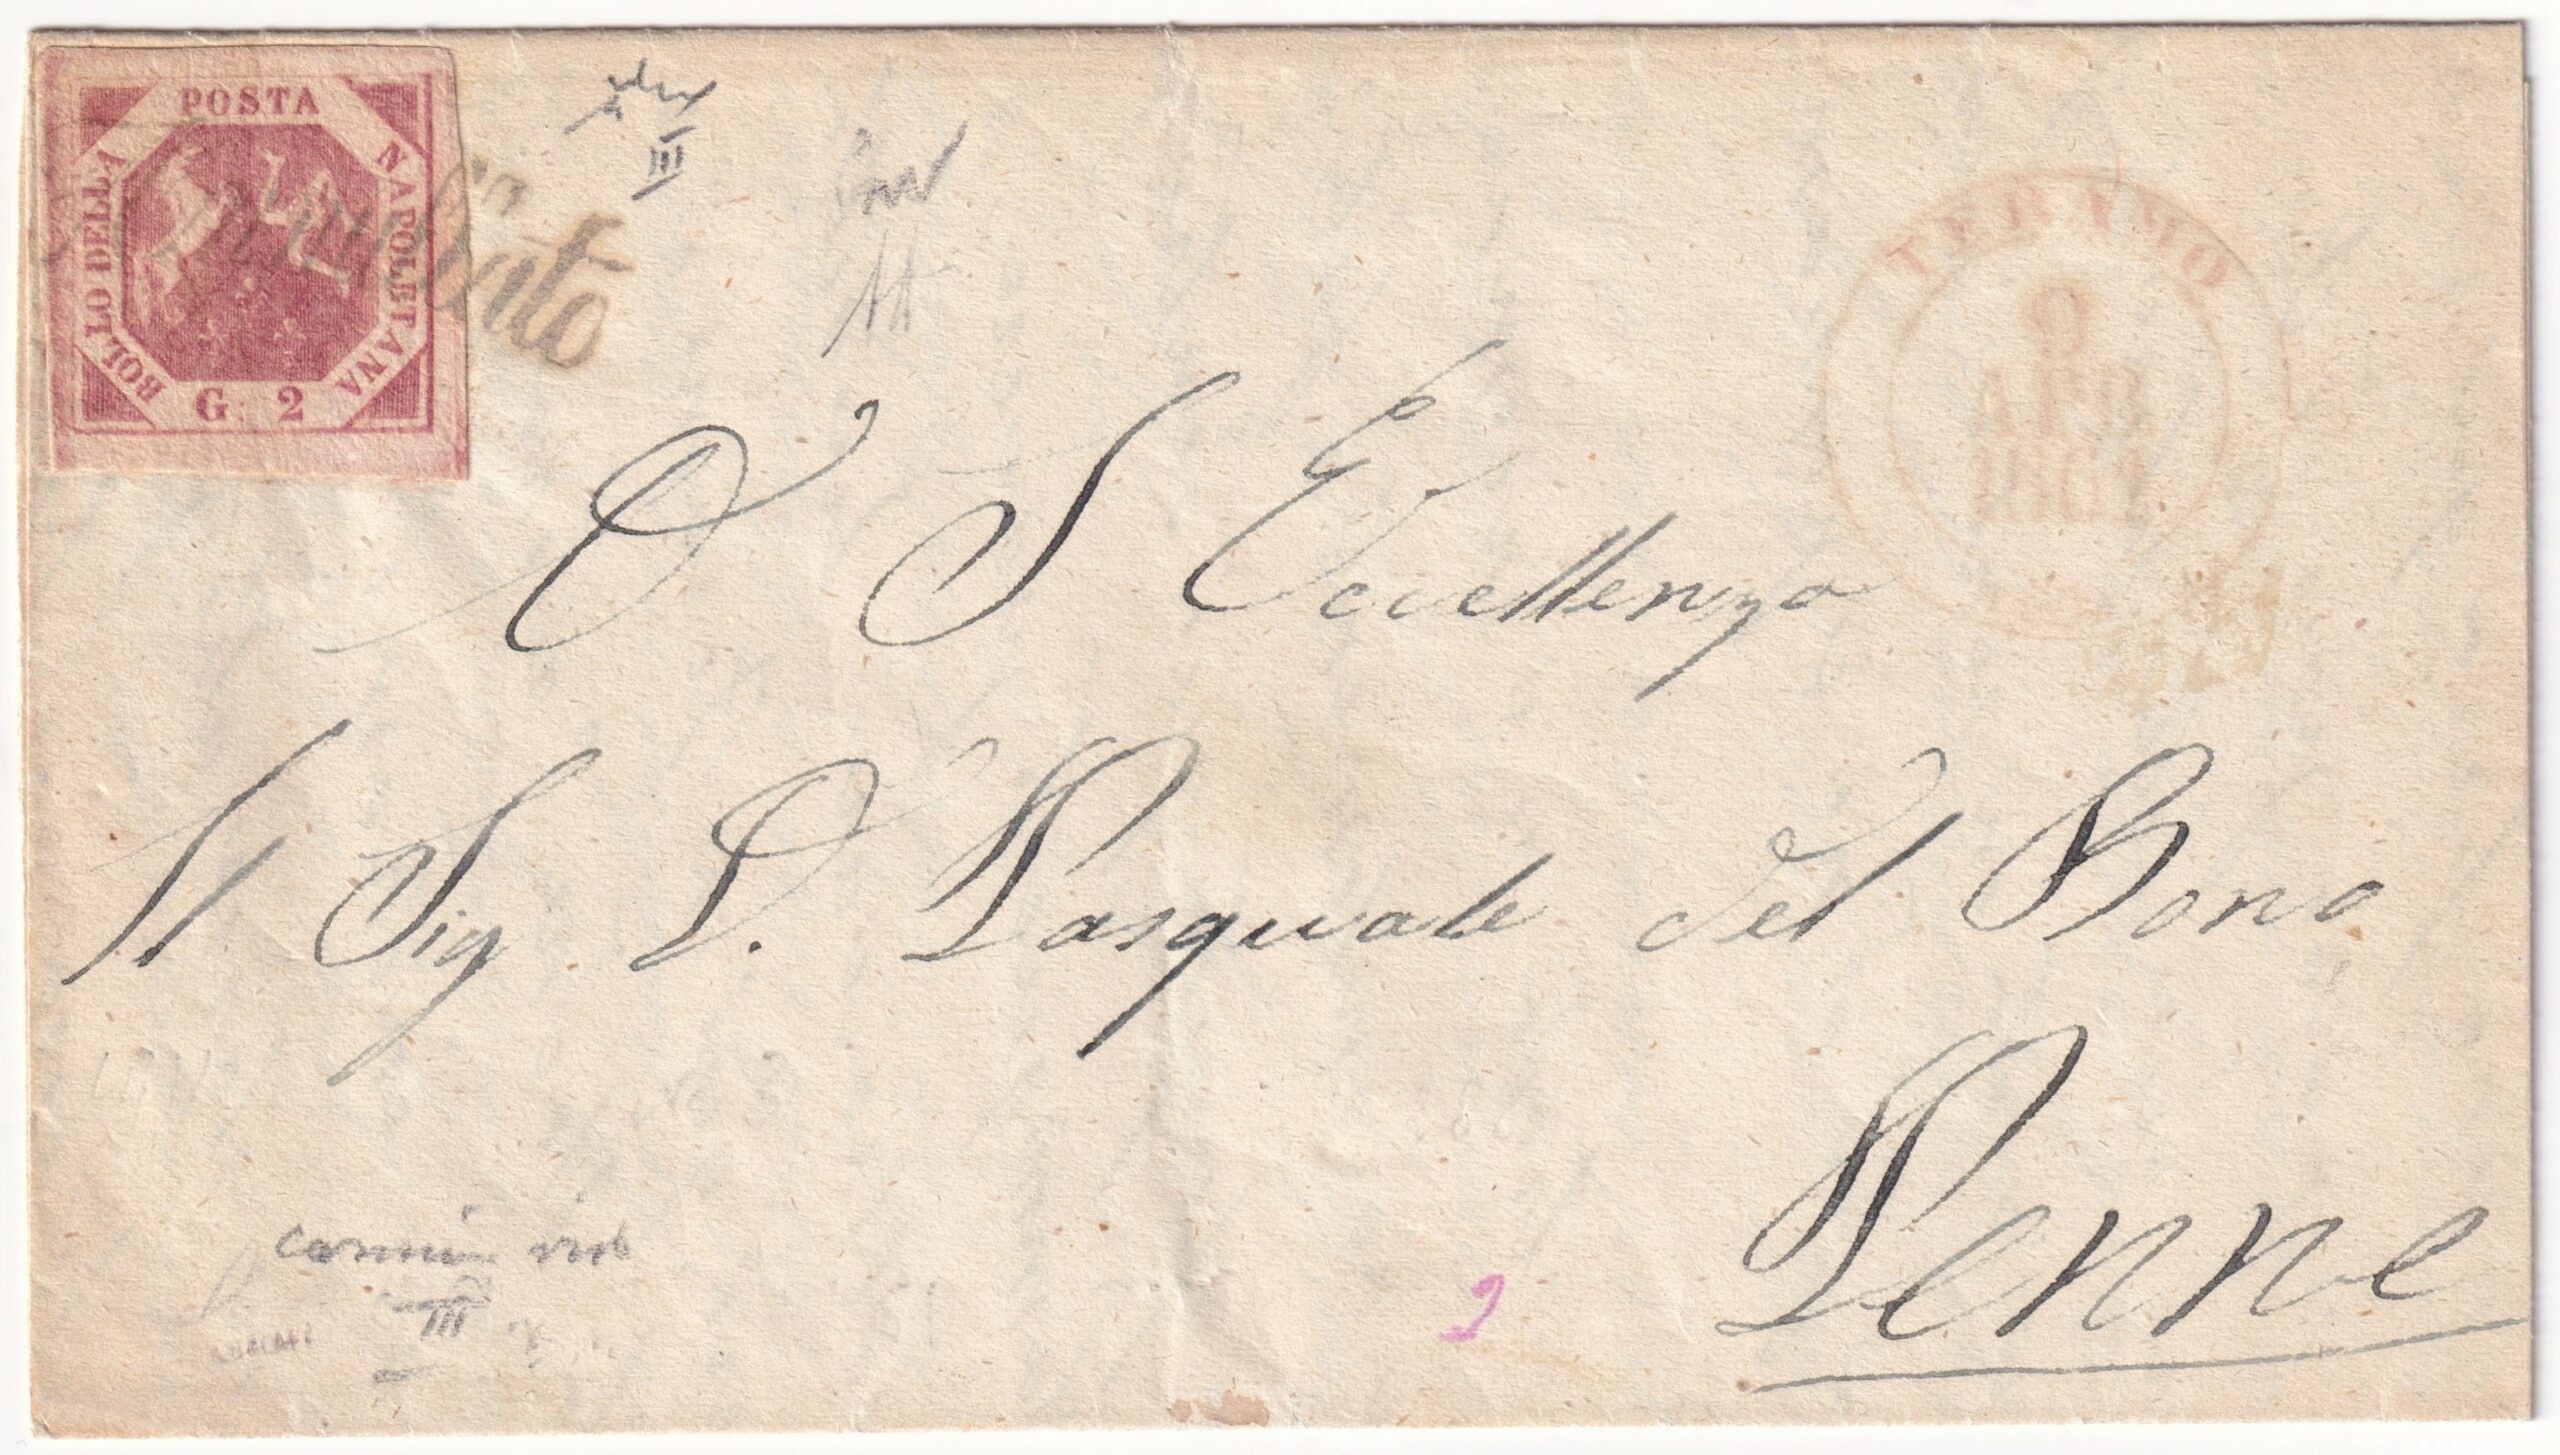 BOLLO DELLA POSTA NAPOLETANA
G. 2
Annullato
III
TERAMO
9
APR
1861
A S Eccellenza
Il Sig D. Pasquale del Bono
Penne
III
2